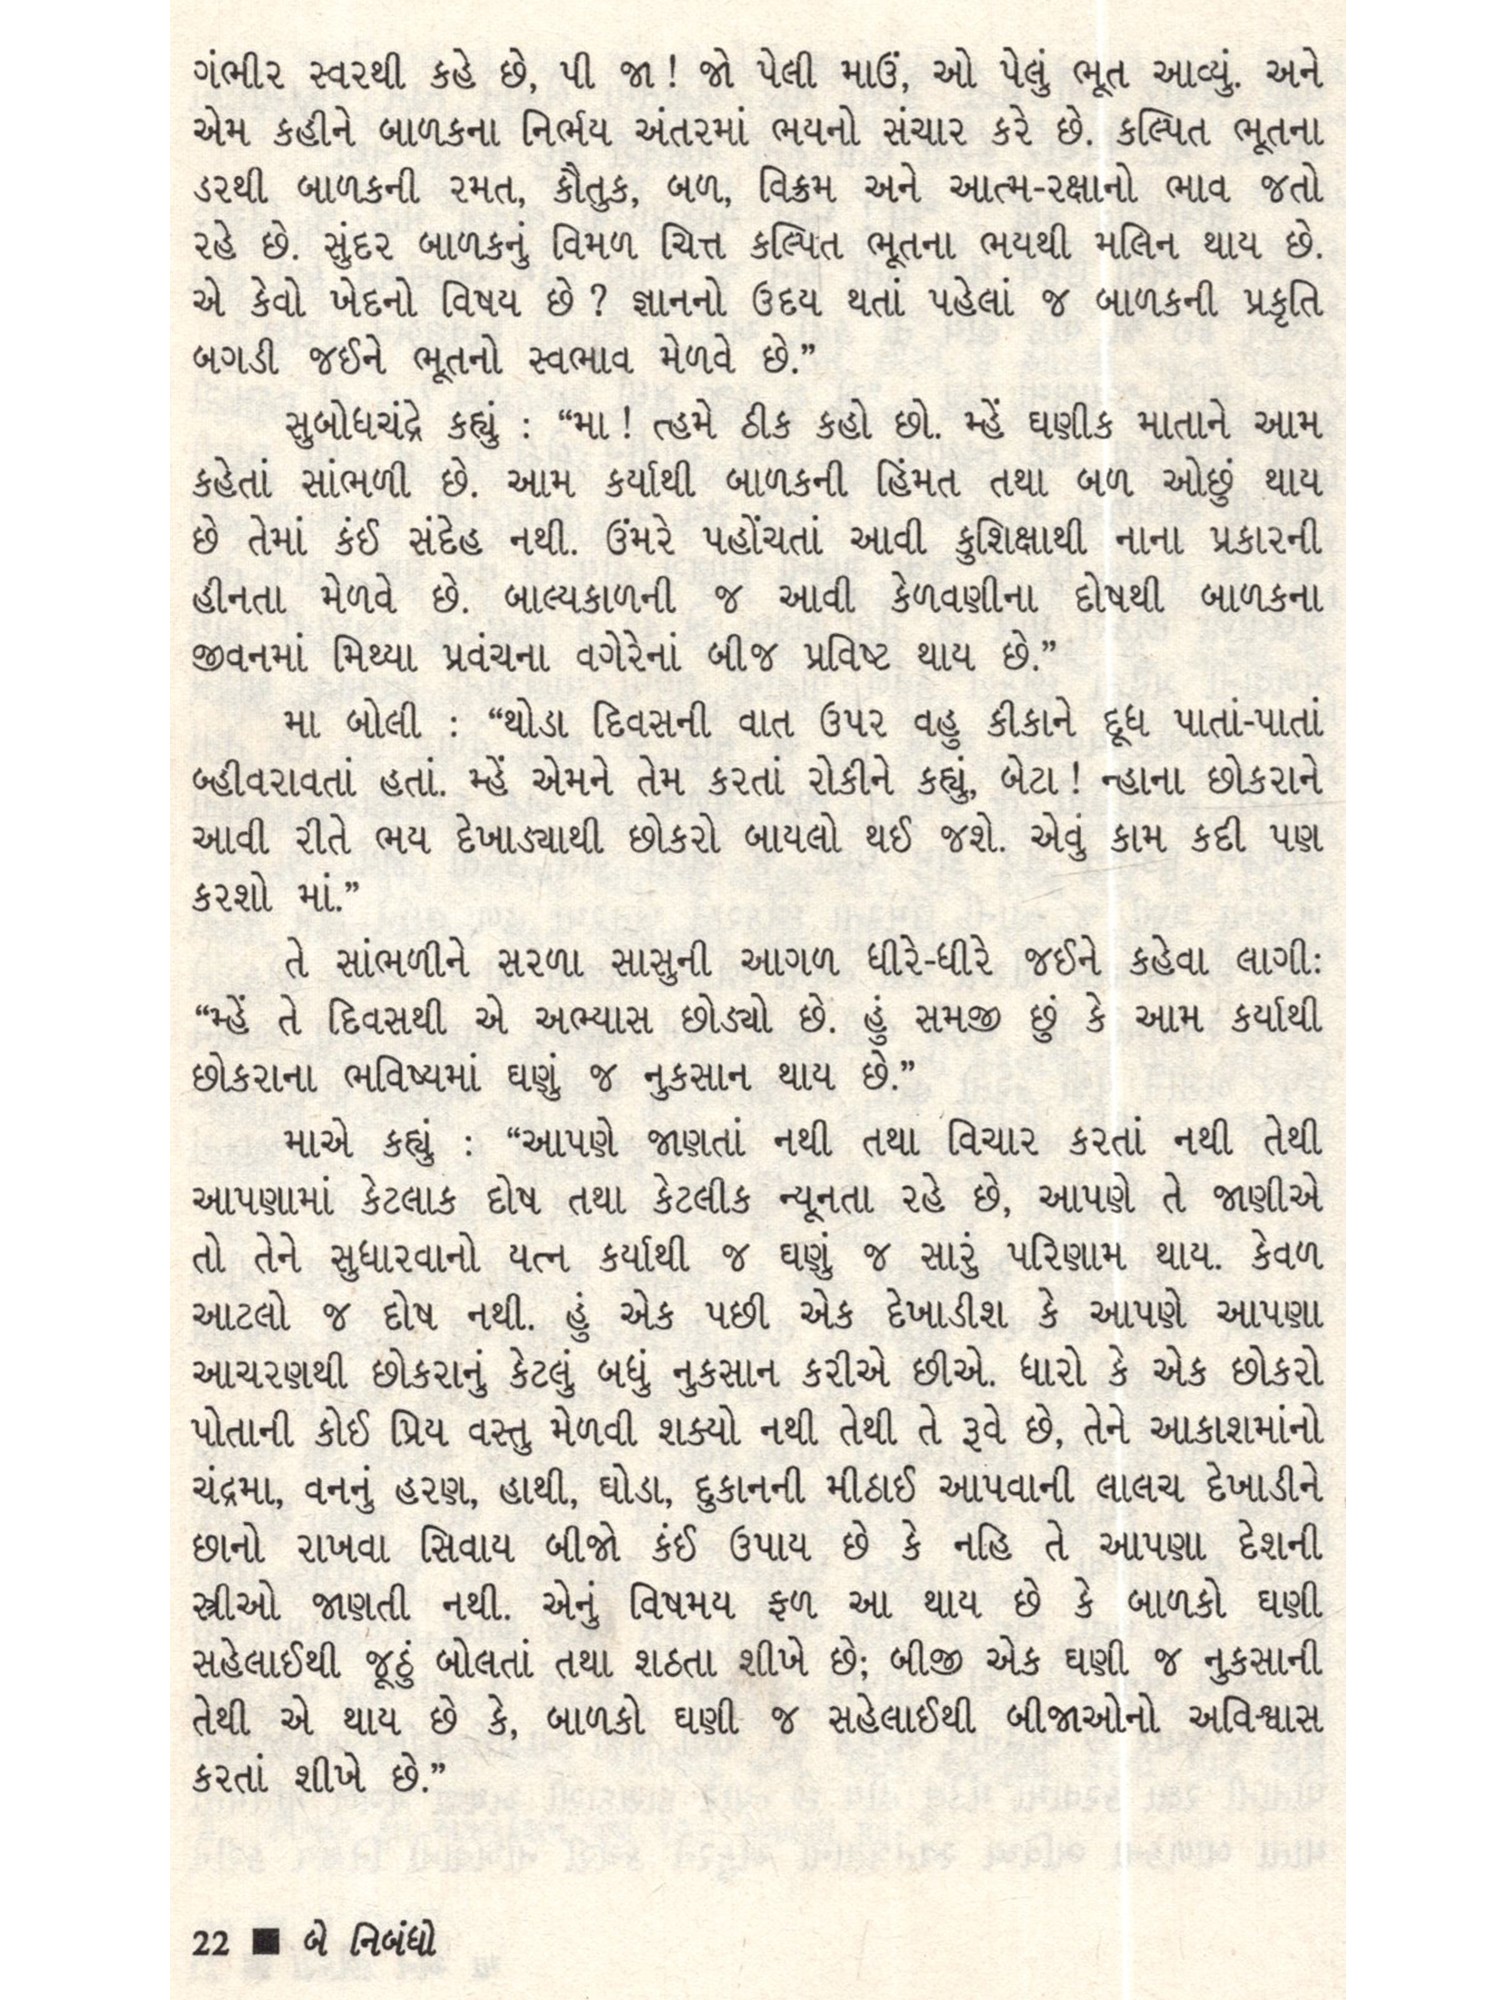 ગંભીર સ્વરથી કહે છે, પી જા! જો પેલી માઉં, ઓ પેલું ભૂત આવ્યું. અને
એમ કહીને બાળકના નિર્ભય અંતરમાં ભયનો સંચાર કરે છે. કલ્પિત ભૂતના
ડરથી બાળકની રમત, કૌતુક, બળ, વિક્રમ અને આત્મ-રક્ષાનો ભાવ જતો
રહે છે. સુંદર બાળકનું વિમળ ચિત્ત કલ્પિત ભૂતના ભયથી મલિન થાય છે.
એ કેવો ખેદનો વિષય છે? જ્ઞાનનો ઉદય થતાં પહેલાં જ બાળકની પ્રકૃતિ
બગડી જઈને ભૂતનો સ્વભાવ મેળવે છે.”
સુબોધચંદ્રે કહ્યું : “મા! ત્હમે ઠીક કહો છો. મ્હેં ઘણીક માતાને આમ
કહેતાં સાંભળી છે. આમ કર્યાથી બાળકની હિંમત તથા બળ ઓછું થાય
છે તેમાં કંઈ સંદેહ નથી. ઉંમરે પહોંચતાં આવી કુશિક્ષાથી નાના પ્રકારની
હીનતા મેળવે છે. બાલ્યકાળની જ આવી કેળવણીના દોષથી બાળકના
જીવનમાં મિથ્યા પ્રવંચના વગેરેનાં બીજ પ્રવિષ્ટ થાય છે.”
મા બોલી : “થોડા દિવસની વાત ઉપર વહુ કીકાને દૂધ પાતાં-પાતાં
બ્હીવરાવતાં હતાં. મ્હેં એમને તેમ કરતાં રોકીને કહ્યું, બેટા! ન્હાના છોકરાને
આવી રીતે ભય દેખાડ્યાથી છોકરો બાયલો થઈ જશે. એવું કામ કદી પણ
કરશો માં.”
તે સાંભળીને સરળા સાસુની આગળ ધીરે-ધીરે જઈને કહેવા લાગી:
“મ્હેં તે દિવસથી એ અભ્યાસ છોડ્યો છે. હું સમજી છું કે આમ કર્યાથી
છોકરાના ભવિષ્યમાં ઘણું જ નુકસાન થાય છે.”
માએ કહ્યું : “આપણે જાણતાં નથી તથા વિચાર કરતાં નથી તેથી
આપણામાં કેટલાક દોષ તથા કેટલીક ન્યૂનતા રહે છે, આપણે તે જાણીએ
તો તેને સુધારવાનો યત્ન કર્યાથી જ ઘણું જ સારું પરિણામ થાય. કેવળ
આટલો જ દોષ નથી. હું એક પછી એક દેખાડીશ કે આપણે આપણા
આચરણથી છોકરાનું કેટલું બધું નુકસાન કરીએ છીએ. ધારો કે એક છોકરો
પોતાની કોઈ પ્રિય વસ્તુ મેળવી શક્યો નથી તેથી તે રૂવે છે, તેને આકાશમાંનો
ચંદ્રમા, વનનું હરણ, હાથી, ઘોડા, દુકાનની મીઠાઈ આપવાની લાલચ દેખાડીને
છાનો રાખવા સિવાય બીજો કંઈ ઉપાય છે કે નહિ તે આપણા દેશની
સ્ત્રીઓ જાણતી નથી. એનું વિષમય ફળ આ થાય છે કે બાળકો ઘણી
સહેલાઈથી જૂઠું બોલતાં તથા શઠતા શીખે છે; બીજી એક ઘણી જ નુકસાની
તેથી એ થાય છે કે, બાળકો ઘણી જ સહેલાઈથી બીજાઓનો અવિશ્વાસ
કરતાં શીખે છે.”
22 ■ બે નિબંધો